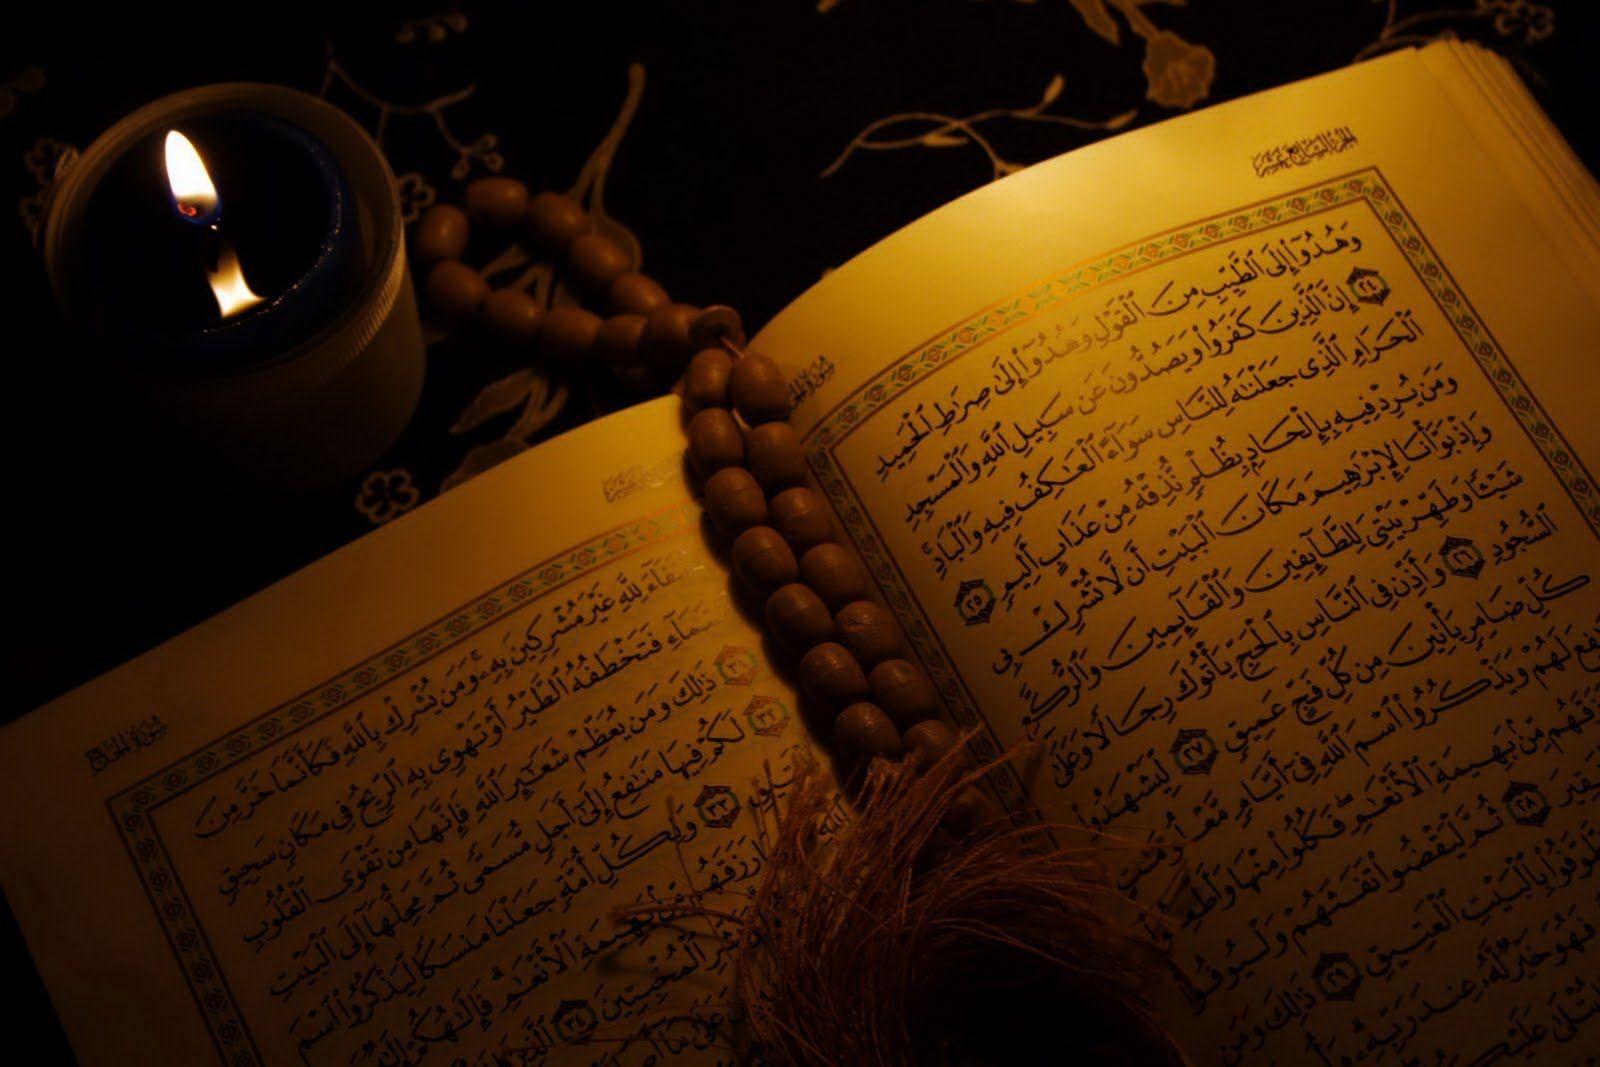 الجزء السابع عشر
سورة
وَهُدُوٓا۟ إِلَى ٱلطَّيِّبِ مِنَ ٱلْقَوْلِ وَهُدُوٓا۟ إِلَىٰ صِرَٰطِ ٱلْحَمِيدِ
٢٤ إِنَّ ٱلَّذِينَ كَفَرُوا۟ وَيَصُدُّونَ عَن سَبِيلِ ٱللَّهِ وَٱلْمَسْجِدِ
ٱلْحَرَامِ ٱلَّذِى جَعَلْنَٰهُ لِلنَّاسِ سَوَآءً ٱلْعَٰكِفُ فِيهِ وَٱلْبَادِ ۚ
وَمَن يُرِدْ فِيهِ بِإِلْحَادٍۭ بِظُلْمٍ نُّذِقْهُ مِنْ عَذَابٍ أَلِيمٍ ٢٥
وَإِذْ بَوَّأْنَا لِإِبْرَٰهِيمَ مَكَانَ ٱلْبَيْتِ أَن لَّا تُشْرِكْ بِى
شَيْـًٔا وَطَهِّرْ بَيْتِىَ لِلطَّآئِفِينَ وَٱلْقَآئِمِينَ وَٱلرُّكَّعِ
ٱلسُّجُودِ ٢٦ وَأَذِّن فِى ٱلنَّاسِ بِٱلْحَجِّ يَأْتُوكَ رِجَالًا وَعَلَىٰ
كُلِّ ضَامِرٍ يَأْتِينَ مِن كُلِّ فَجٍّ عَمِيقٍ ٢٧ لِّيَشْهَدُوا۟
لَهُمْ وَيَذْكُرُوا۟ ٱسْمَ ٱللَّهِ فِىٓ أَيَّامٍ مَّعْلُومَٰتٍ
مِّنۢ بَهِيمَةِ ٱلْأَنْعَٰمِ ۖ فَكُلُوا۟ مِنْهَا
٢٨ ثُمَّ لْيَقْضُوا۟ تَفَثَهُمْ وَلْيُوفُوا۟
بِٱلْبَيْتِ ٱلْعَتِيقِ ٢٩ ذَٰلِكَ وَمَن
فَهُوَ خَيْرٌ لَّهُۥ عِندَ رَبِّهِۦ ۗ
سورة الحج
لِلَّهِ غَيْرَ مُشْرِكِينَ بِهِۦ ۚ وَمَن يُشْرِكْ بِٱللَّهِ فَكَأَنَّمَا خَرَّ مِنَ
فَتَخْطَفُهُ ٱلطَّيْرُ أَوْ تَهْوِى بِهِ ٱلرِّيحُ فِى مَكَانٍ سَحِيقٍ
٣١ ذَٰلِكَ وَمَن يُعَظِّمْ شَعَٰٓئِرَ ٱللَّهِ فَإِنَّهَا مِن تَقْوَى ٱلْقُلُوبِ
٣٢ لَكُمْ فِيهَا مَنَٰفِعُ إِلَىٰٓ أَجَلٍ مُّسَمًّى ثُمَّ مَحِلُّهَآ إِلَى ٱلْبَيْتِ
٣٣ وَلِكُلِّ أُمَّةٍ جَعَلْنَا مَنسَكًا لِّيَذْكُرُوا۟ ٱسْمَ
ٱللَّهِ رَزَقَهُم بَهِيمَةِ ٱلْأَنْعَٰمِ ۗ فَإِلَٰهُكُمْ
ٱلْمُخْبِتِينَ ٣٤